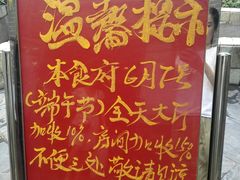 温馨提示
本食府6月7号
(端午节)全天大厅
加收10%,房间加收15%
不便之处 敬请